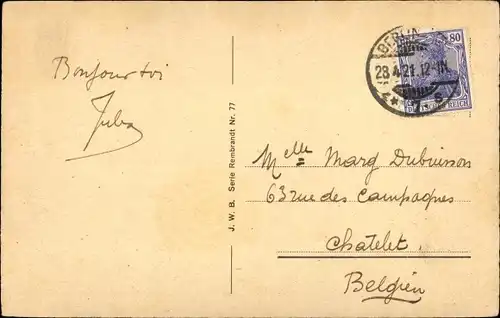 Bonjour toi
Jules
J. W. B. Serie Rembrandt Nr. 77
BERLIN
28.4.21. 12-1N.
80
DEUTSCHES REICH
Melle Marg Dubuisson
63 rue des Campagnes
Chatelet
Belgien